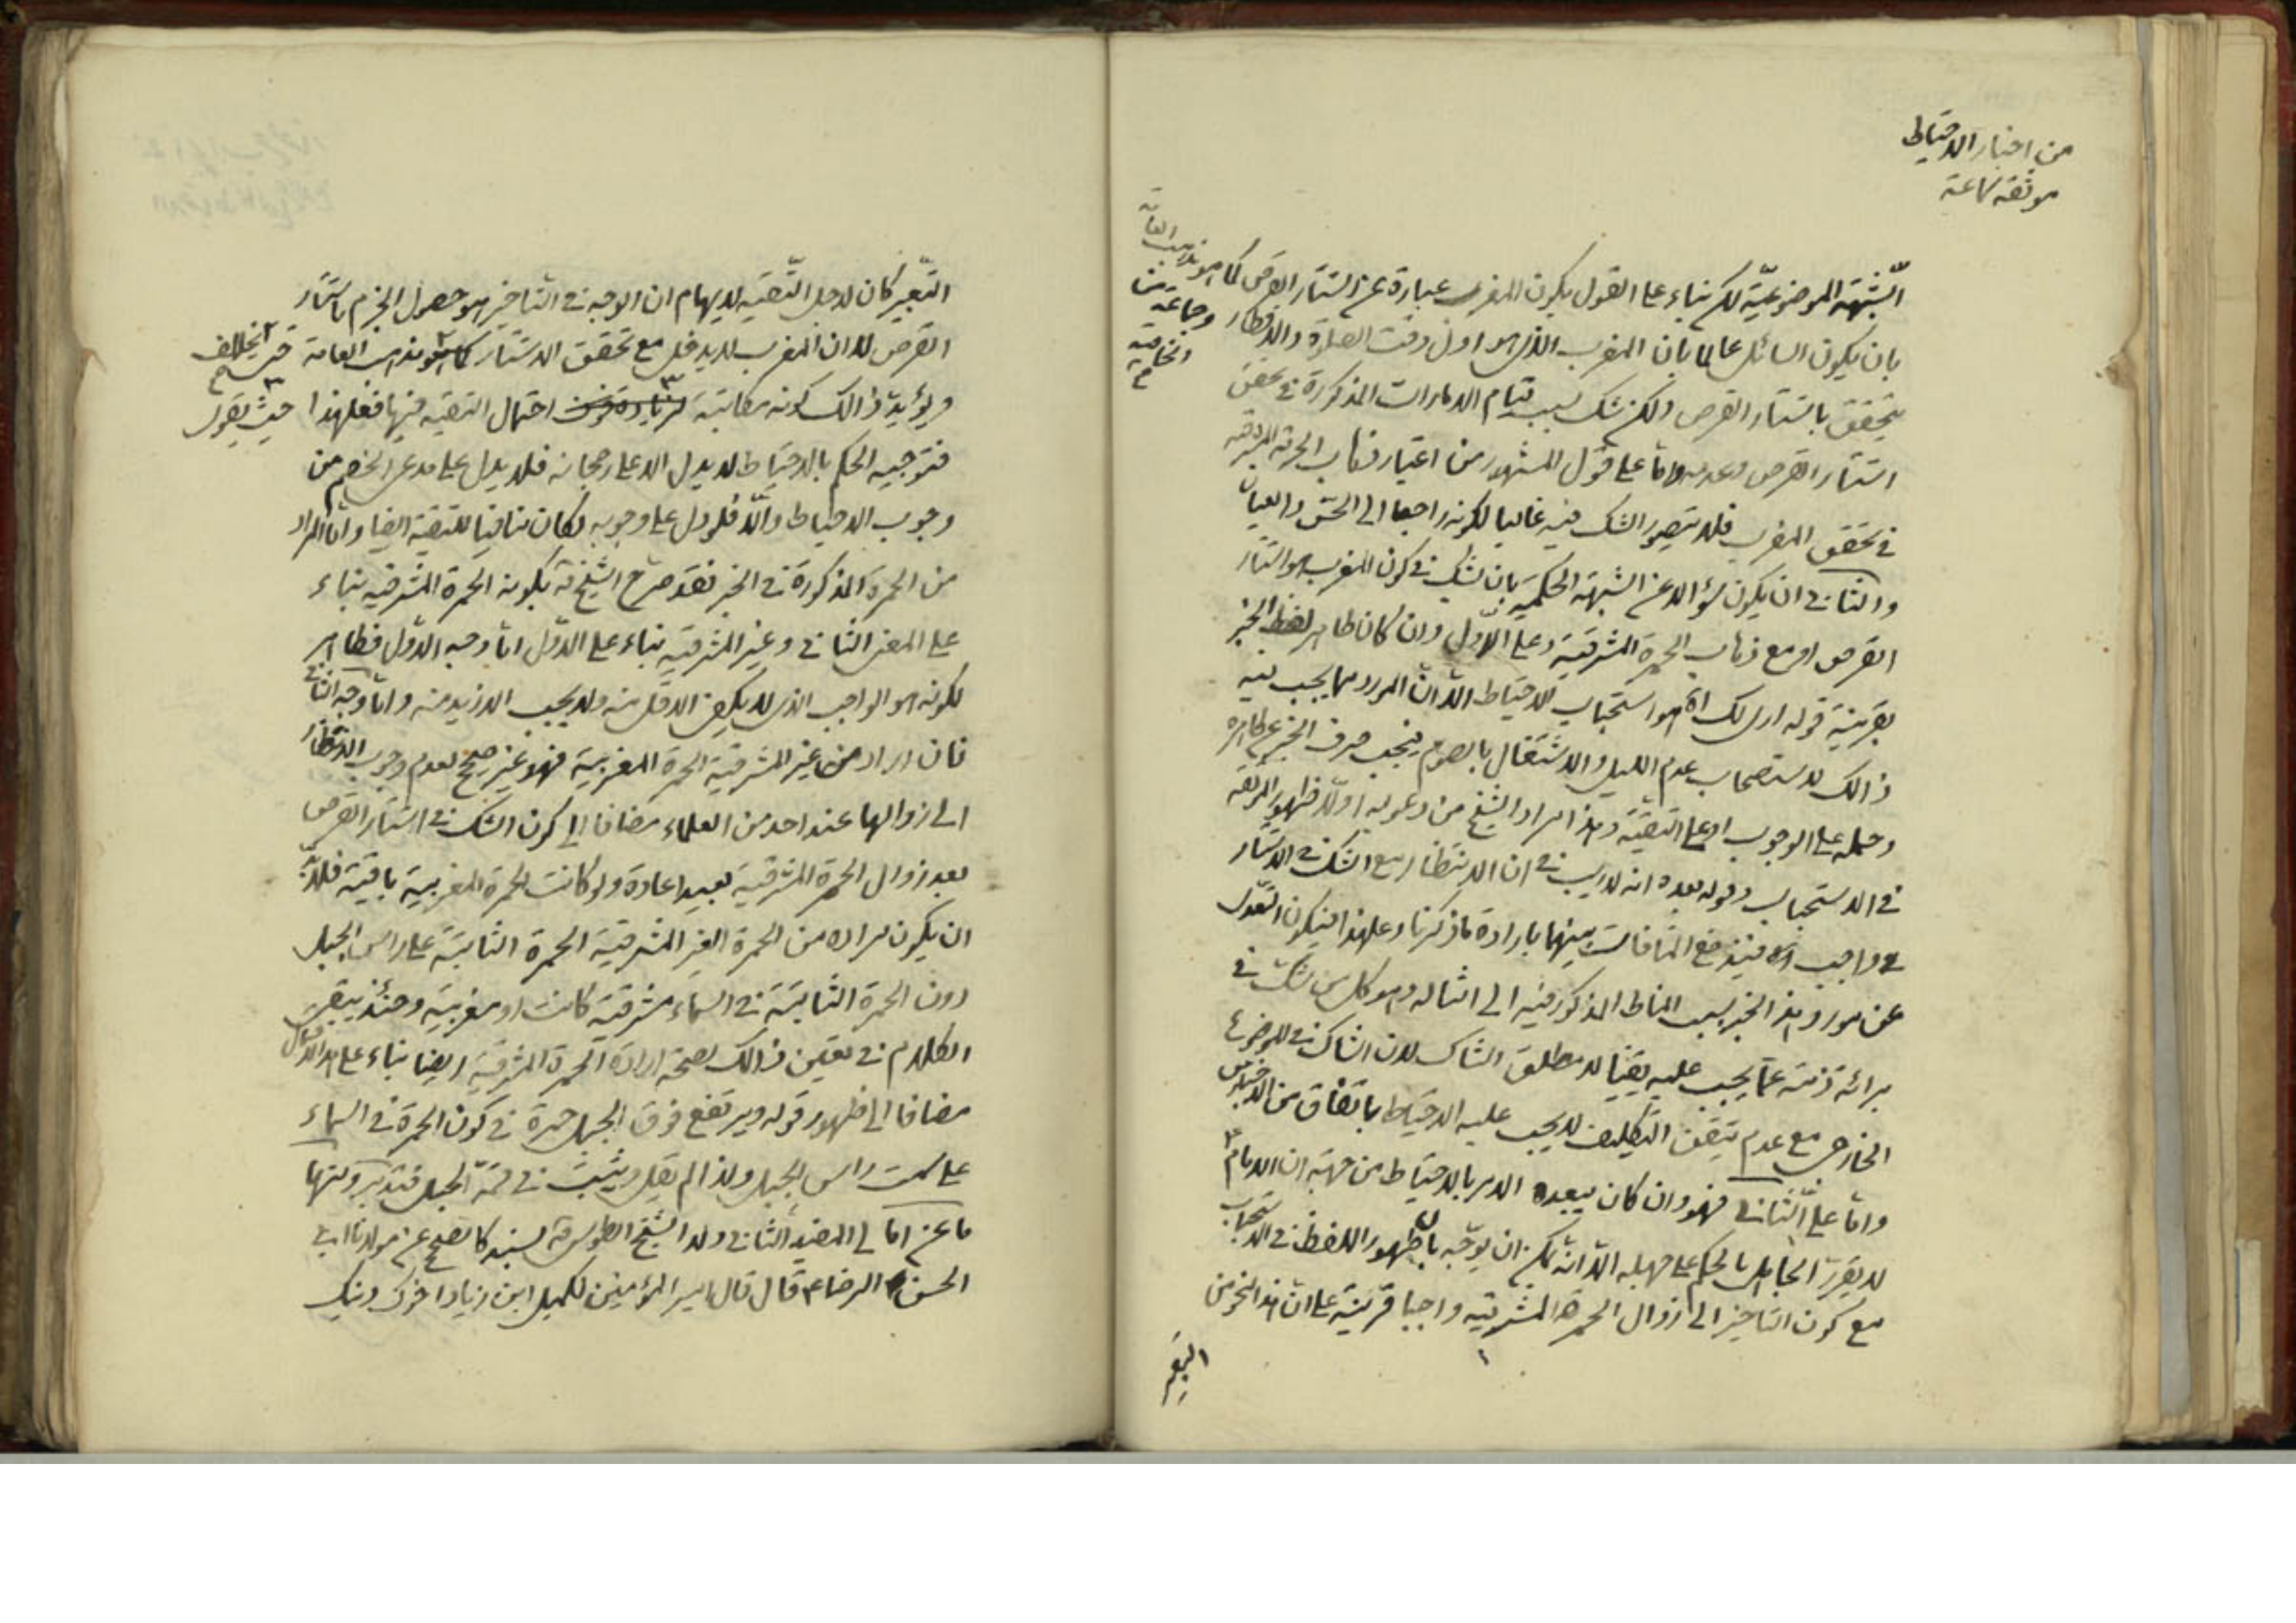 من اخبار الاحتياط
موثقة سماعة
الشبهة الموضوعيّة لكن بناء على القول بكون المغرب عبارة عن استتار القرص كما هو مذهب العامّة
وجماعة من الخاصة
بان يكون السائل عالما بان المغرب الذى هو اول وقت الصلوة والافطار
يتحقق باستتار القرص ولكن شك بسبب قيام الامارات المذكورة فى تحقق
استتار القرص وعدمه وامّا على قول المشهور من اعتبار ذهاب الحمرة المشرقية
فى تحقق المغرب فلا يتصور الشك فيه غالبا لكونه راجعا الى الحسّ والعيان
والثانى ان يكون سؤالا عن الشبهة الحكمية بان شك فى كون المغرب هو استتار
القرص او مع ذهاب الحمرة المشرقية وعلى الاوّل وان كان ظاهر لفظ الخبر
بقرينة قوله ارى لك اه هو استحباب الاحتياط الّا انّ المورد مما يجب فيه
ذالك لاستصحاب عدم الليل والاشتغال بالصوم فيجب صرف الخبر عن ظاهره
وحمله على الوجوب او على التقيّة وهذا مراد الشيخ من دعويه اولا ظهور الموثقة
فى الاستحباب وقوله بعده انه لا ريب فى ان الانتظار مع الشك فى الاستتار
واجب اه فيندفع المنافات بينهما بارادة ما ذكرنا وعلى هذا فيكون التعدّى
عن مورد هذا الخبر بسبب المناط المذكور فيه الى امثاله وهو كل من شكّ فى
برائة ذمته عمّا يجب عليه يقينا لا مطلق الشاك لان الشاك فى الموضوع
الخارجى مع عدم تيقن التكليف لا يجب عليه الاحتياط باتفاق من الاخباريين
وامّا على الثّانى فهو وان كان يبعده الامر بالاحتياط من جهة ان الامام ع
لا يقرّر الجاهل بالحكم على جهله الّا انّه يمكن ان يوجّه بان ظهور اللفظ فى الاستحباب
مع كون التاخير الى زوال الحمرة المشرقية واجبا قرينة على انّ هذا النحو من
التعبير
التّعبير كان لاجل التّقيّة لايهام ان الوجه فى التاخير هو حصول الجزم باستتار
القرص لا ان المغرب لا يدخل مع تحقق الاستتار كما هو مذهب العامة
ويؤيد ذالك كونه مكاتبة احتمال التقية فيها فعلى هذا حيث يقول
فتوجيه الحكم بالاحتياط لا يدل الا على رجحانه فلا يدل على مدعى الخصم من
وجوب الاحتياط والّا فلو دل على وجوبه لكان منافيا للتقية ايضا وامّا المراد
من الحمرة المذكورة فى الخبر فقد صرح الشيخ ره بكونه الحمرة المشرقيه بناء
على المعنى الثانى وغير المشرقية بناء على الاوّل امّا وجه الاوّل فظاهر
لكونه هو الواجب الذى لا يكفى الاقل منه ولا يجب الازيد منه وامّا وجه الثانى
فان اراد من غير المشرقية الحمرة المغربية فهو غير صحيح لعدم وجوب الانتظار
الى زوالها عند احد من العلماء مضافا الى كون الشك فى استتار القرص
بعد زوال الحمرة المشرقية بعيدا عادة ولو كانت الحمرة المغربية باقية فلا بدّ
ان يكون مراده من الحمرة الغير المشرقية الحمرة الثابتة على راس الجبل
دون الحمرة الثابتة فى السماء مشرقية كانت او مغربية وحينئذ يبقى
الكلام فى تعين ذالك لصحة ارادة الحمرة المشرقية ايضا بناء على هذا الاحتمال
مضافا الى ظهور قوله ويرتفع فوق الجبل حمرة فى كون الحمرة فى السماء
على سمت راس الجبل ولذا لم يقل ويثبت فى قمّة الجبل فتدبّر ومنها
ما عن امالى المفيد الثانى ولد الشيخ الطوسى ره بسند كالصحيح عن مولانا ابى
الحسن الرضا ع قال قال امير المؤمنين لكميل ابن زياد اخوك دينك